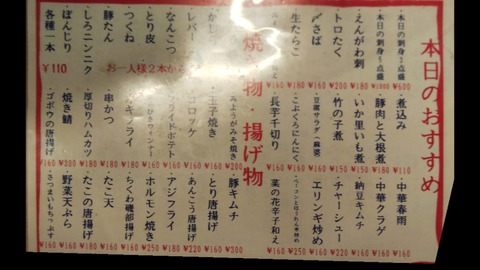 本日のおすすめ
本日の刺身5点盛 ¥1000
本日の刺身3点盛 ¥600
えんがわ刺 ¥200
トロたく ¥200
〆さば ¥180
生たらこ ¥160
煮込み ¥110
豚肉と大根煮 ¥180
いか里いも煮 ¥150
竹の子煮 ¥150
豆腐サラダ
こぶくろにんにく ¥180
長芋千切り ¥160
中華春雨 ¥160
中華クラゲ ¥160
納豆キムチ ¥160
チャーシュー ¥160
エリンギ炒め ¥160
菜の花辛子和え ¥160
焼き物・揚げ物
レバー
なんこつ
とり皮
つくね
豚たん
しろニンニク
ぼんじり
各種一本 ¥110
お一人様2本から
みょうがみそ焼き ¥200
玉子焼き ¥160
コロッケ
フライドポテト
串かつ
厚切りハムカツ ¥180
焼き鯖 ¥300
ゴボウの唐揚げ ¥160
豚キムチ ¥300
とり唐揚げ ¥160
あんこう唐揚げ ¥220
アジフライ ¥180
ホルモン焼き ¥250
ちくわ磯部揚げ ¥160
たこ天 ¥160
たこの唐揚げ ¥180
野菜天ぷら ¥160
さつまいもちっぷす ¥160